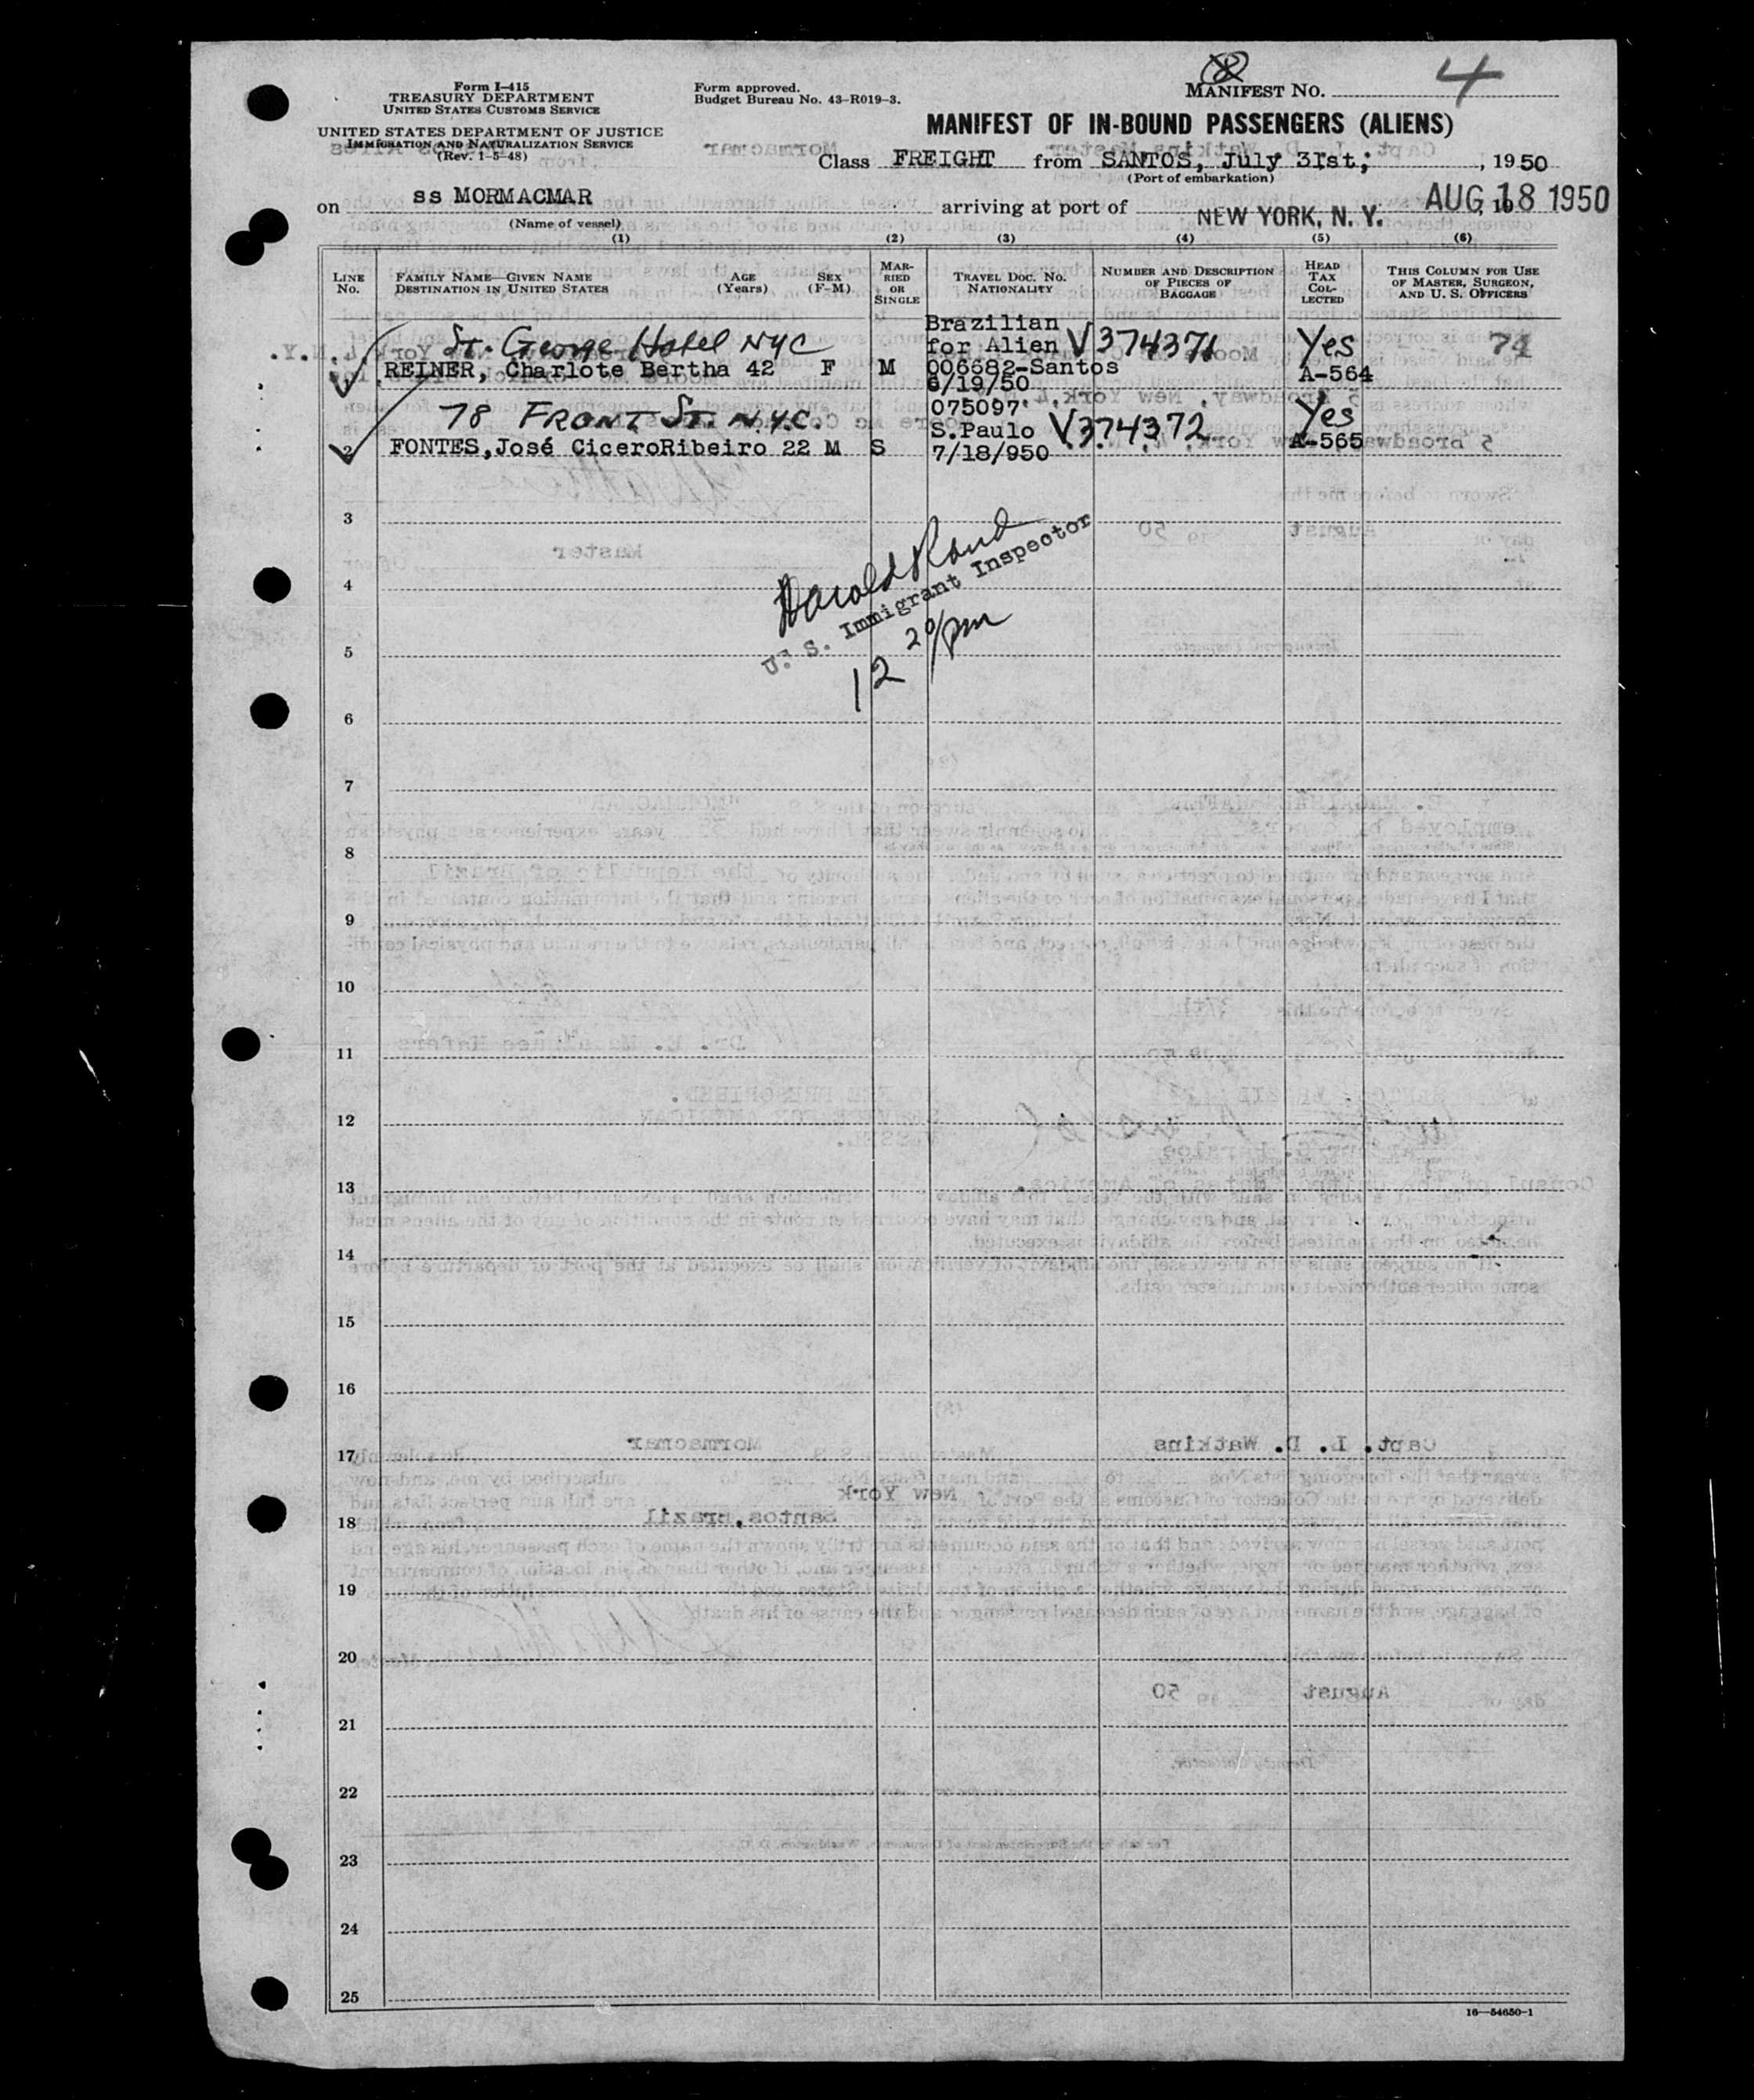 Form I-415
TREASURY DEPARTMENT
UNITED STATES CUSTOMS SERVICE
UNITED STATES DEPARTMENT OF JUSTICE
IMMIGRATION AND NATURALIZATION SERVICE
(Rev. 1-5-48)
Form approved.
Budget Bureau No. 43-R019-3.
MANIFEST NO. 4
MANIFEST OF IN-BOUND PASSENGERS (ALIENS)
Class FREIGHT from SANTOS, July 31st; , 1950
(Port of embarkation)
on ss MORMACMAR arriving at port of NEW YORK, N. Y. AUG 18 1950
(Name of vessel)
(1) (2) (3) (4) (5) (6)
LINE No. FAMILY NAME—GIVEN NAME DESTINATION IN UNITED STATES AGE (Years) SEX (F-M) MARRIED OR SINGLE TRAVEL DOC. NO. NATIONALITY NUMBER AND DESCRIPTION OF PIECES OF BAGGAGE HEAD TAX COLLECTED THIS COLUMN FOR USE OF MASTER, SURGEON, AND U. S. OFFICERS
Brazilian
St. George Hotel NYC for Alien V374371 Yes 74
REINER, Charlote Bertha 42 F M 006682-Santos A-564
6/19/50
78 FRONT St. N.Y.C. 075097 Yes
S.Paulo V374372
2 FONTES,José CiceroRibeiro 22 M S 7/18/950 A-565
3
Harold Rand
U. S. Immigrant Inspector
4
12 20/pm
5
6
7
8
9
10
11
12
13
14
15
16
17
18
19
20
21
22
23
24
25
16—54650-1